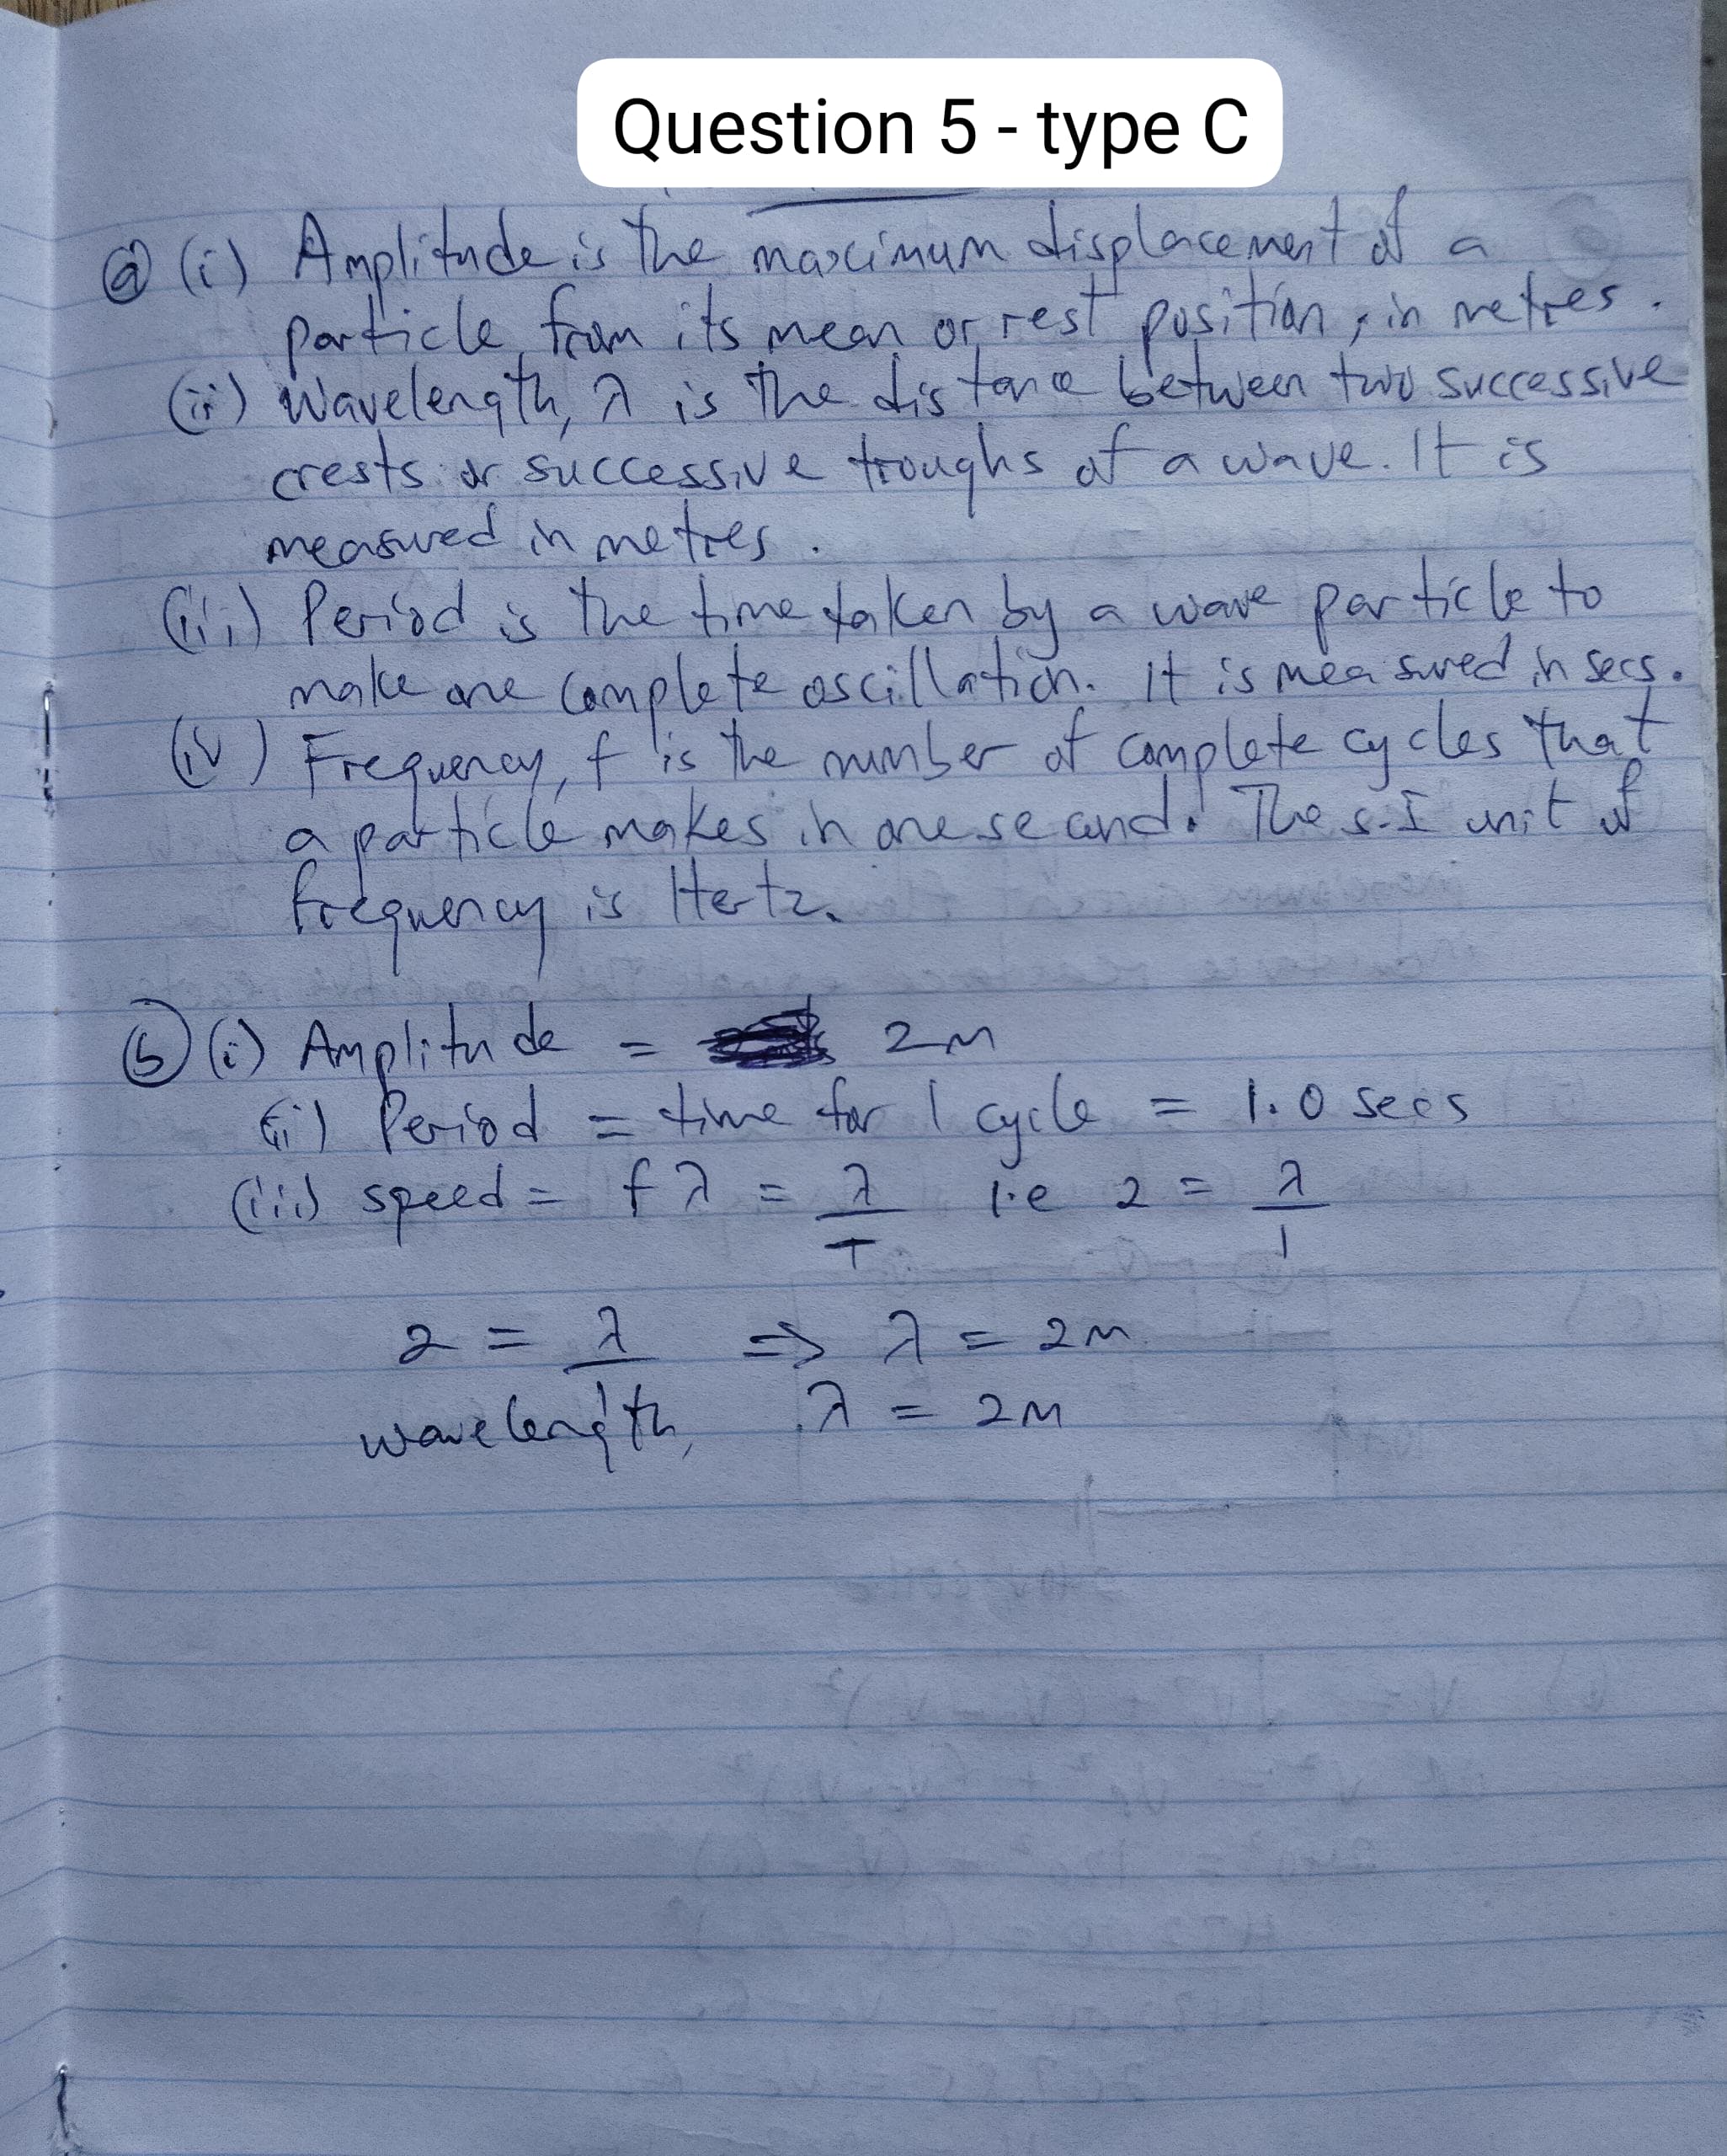 Question 5 - type C
(a) (i) Amplitude is the maximum displacement of a
particle from its mean or rest position, in metres.
(ii) Wavelength, λ is the distance between two successive
crests or successive troughs of a wave. It is
measured in metres.
(iii) Period is the time taken by a wave particle to
make one complete oscillation. It is measured in secs.
(iv) Frequency, f is the number of complete cycles that
a particle makes in one second. The S.I unit of
frequency is Hertz.
(b) (i) Amplitude = 2m
(ii) Period = time for 1 cycle = 1.0 secs
(iii) speed = fλ = λ/T i.e 2 = λ/1
2 = λ/1 => λ = 2m
wavelength, λ = 2m